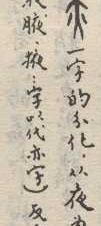 一字的分化,以夜
腋、掖二字以代亦字)